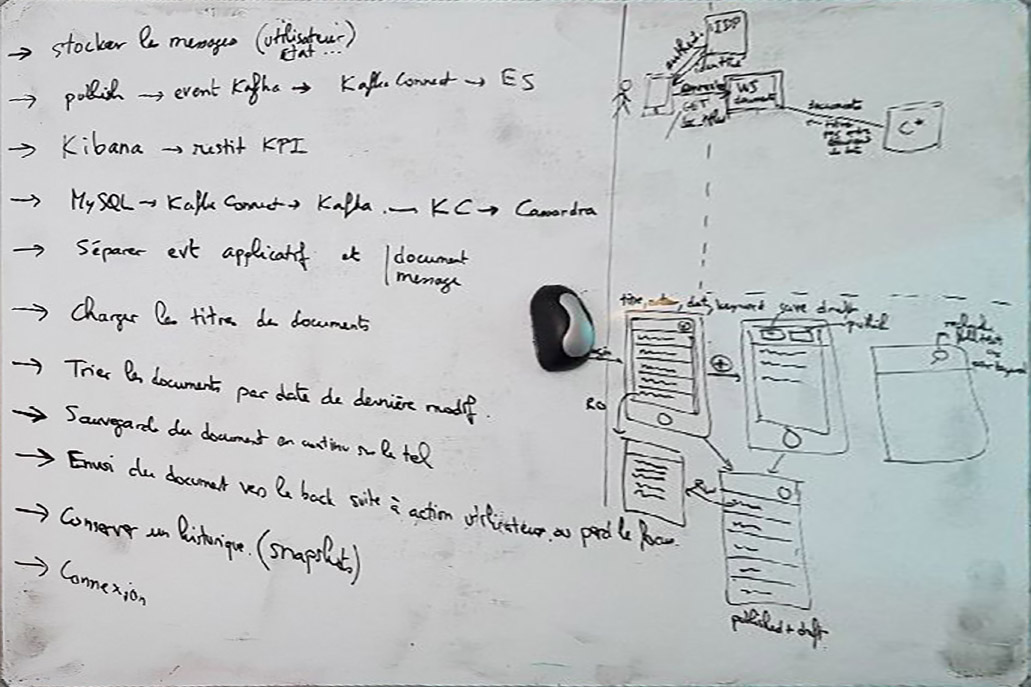 → stocker les messages (utilisateur
Etat ...)
→ publish → event Kafka → Kafka Connect → ES
→ Kibana → restit KPI
→ MySQL → Kafka Connect → Kafka → KC → Cassandra
→ Séparer evt applicatif et | document
message
→ Charger les titres de documents
→ Trier les documents par date de dernière modif.
→ Sauvegarde du document en continu sur le tel
→ Envoi du document vers le back suite à action utilisateur ou perd le focus.
→ Conserver un historique. (snapshots)
→ Connexion
IDP
identité
WS
document
GET
documents
C*
titre, date, keyword save draft
publish
+
RO
RW
published + draft